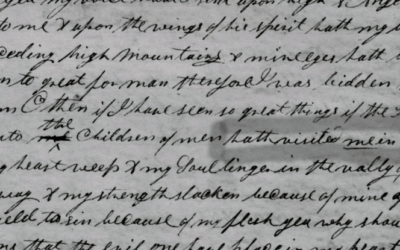 my voice have I sent upon high & Ange
to me & upon the wings of his Spirit hath my b
ceeding high Mountains & mine eyes hath b
to great for man therefore I was bidden
O then if I have seen so great things if the
nto the Children of men hath visited me in
y heart weep & my Soul linger in the vally o
way & my strength slacken because of mine a
ield to sin because of my flesh yea why shou
me that the evil one have place in my heart